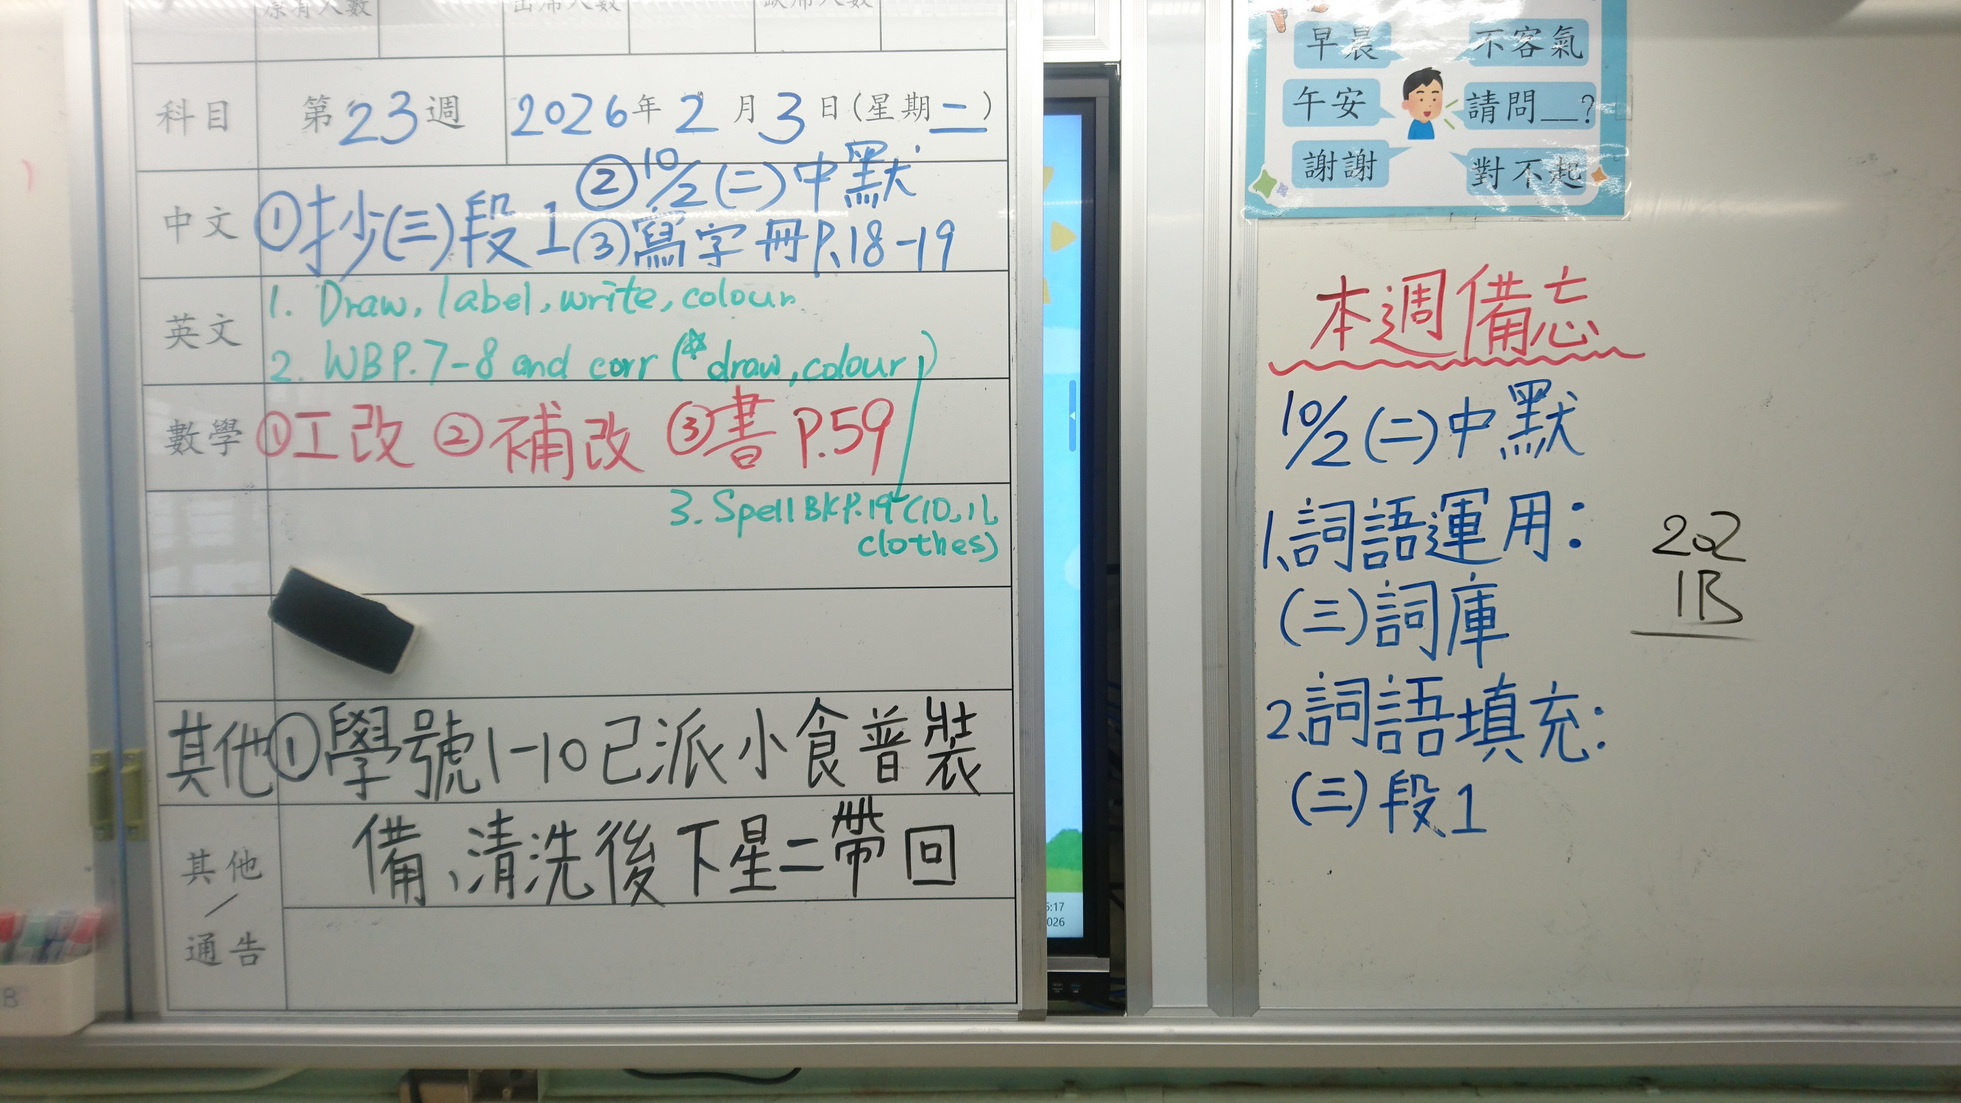 原有人數 出席人數 缺席人數
科目 第23週 2026年2月3日(星期二)
中文 ①抄(三)段1 ②10/2(二)中默
③寫字冊P.18-19
英文 1. Draw, label, write, colour
2. WBP.7-8 and corr (*draw, colour)
數學 ①工改 ②補改 ③書P.59
3. Spell BKP.19 (10, 11,
clothes)
其他 ①學號1-10已派小食普裝
備、清洗後下星二帶回
其他
/
通告
早晨 不客氣
午安 請問__?
謝謝 對不起
本週備忘
10/2(二)中默
1.詞語運用:
(三)詞庫
2.詞語填充:
(三)段1
202
1B
5:17
026
B